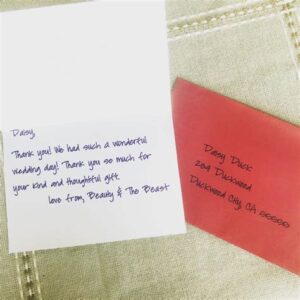 Daisy,
Thank you! We had such a wonderful
wedding day! Thank you so much for
your kind and thoughtful gift.
love from, Beauty & The Beast
Daisy Duck
269 Duckwood
Duckwood City, CA 55555